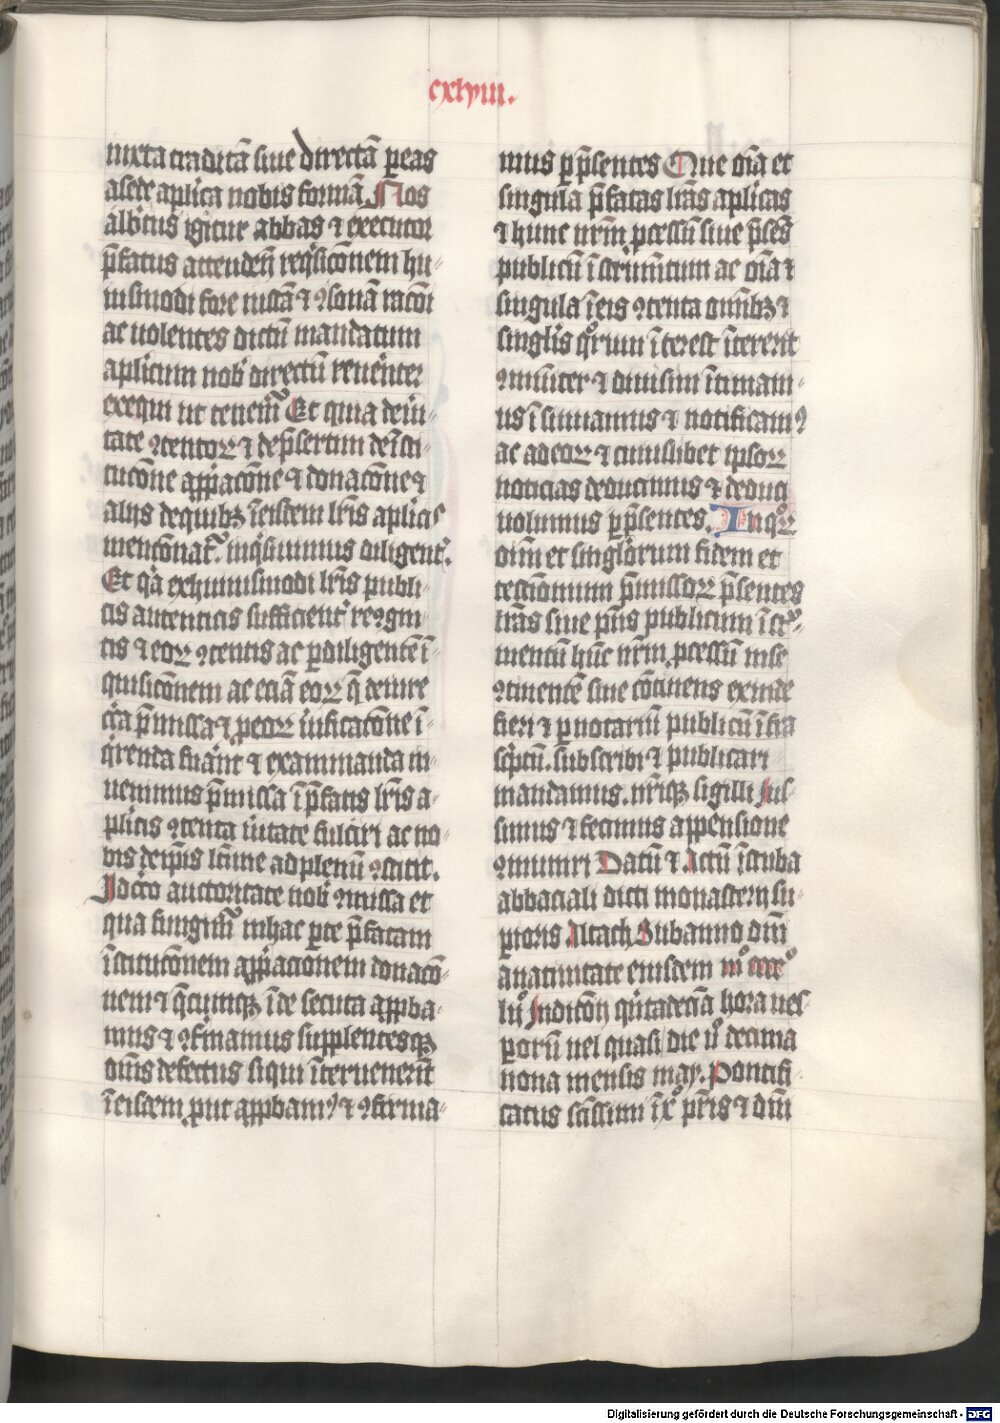 cxlviii.
iuxta traditā siue directā ꝑ eas
a sede aplica nobis formā Nos
albtus igitur abbas ⁊ executor
p̄fatus attenden̄ req̇sicōnem hu⸗
iusmodi fore iustā ⁊ ꝯsonā racōi
ac uolentes dictū mandatum
aplicum nob̕ directū reuēnter
exequi ut tenem̄ᷣ Et quia de iu̇⸗
tate ꝯtentoꝝ ⁊ dep̄sertim de īsti⸗
tucōne app̄acōne ⁊ donacōne ⁊
alijs de quibꝫ ī eisdem lr̄is aplicis
mencōnat᷑. inq̇siuimus diligent᷑.
Et q̇a ex huiusmodi lr̄is publi⸗
cis autenticis sufficient᷑ reꝯgni⸗
tis ⁊ eoꝝ ꝯtentis ac ꝑ diligentē ī⸗
quisicōnem ac eciā eoꝝ q̄ de iure
cīa p̄missa ⁊ ꝓ eoꝝ u̇ificacōne ī⸗
q̇renda fuānt ⁊ examinanda in⸗
uenimus p̄missa ī p̄fatis lr̄is a⸗
plicis ꝯtenta u̇itate fulciri ac no⸗
bis de ip̄is lc̄ime ad plenū ꝯstitit.
Idcīco auctoritate nob̕ ꝯmissa et
qua fungim᷑ in hac ꝑte p̄fatam
īstitucōnem app̄acionem donacō⸗
nem ⁊ q̄cumqꝫ īde secuta appba⸗
mus ⁊ ꝯfirmamus supplentesqꝫ
om̄is defectus siqui īteruenerīt
ī eisdem ꝓut appbamꝰ ⁊ ꝯfirma⸗
mus ꝑ p̄sentes Que oīa et
singula p̄fatas lr̄as aplicas
⁊ hunc nr̄m ꝓcessū siue p̄sēs
publicū īstrum̄tum ac oīa ⁊
singula ī eis ꝯtenta omībꝫ ⁊
singlis q̊rum īterest īterent
ꝯmu̇iter ⁊ diuisim ītimam⸗
us īsinuamus ⁊ notificamꝰ
ac ad eoꝝ ⁊ cuiuslibet ipsoꝝ
noticias deducimus ⁊ deduci
uolumus ꝑ p̄sentes. In q̊ꝝ
oim̄ et singlorum fidem et
testimonium p̄missoꝝ p̄sentes
lr̄as siue p̄ns publicum īstr̊⸗
mentū hūc nr̄m ꝓcessū in se
ꝯtinentē siue cōtinens exinde
fieri ⁊ ꝑ notariū publicū īfra
sc̄ptū. subscribi ⁊ publicari
mandamus. nr̄iqꝫ sigilli ius⸗
simus ⁊ fecimus appensione
ꝯmuniri Datū ⁊ Actū ī stuba
abbaciali dicti monasterij su⸗
perioris Altach Sub anno dn̄i
a natiuitate eiusdem mͦ cccͦ
luͦ Indictōn̄ q̇ntadeciā hora ues
ꝑorū uel quasi die uͦ decima
nona mensis may. Pontifi⸗
catus sc̄issimi ī xͦ pr̄is ⁊ dn̄i
Digitalisierung gefördert durch die Deutsche Forschungsgemeinschaft - DFG